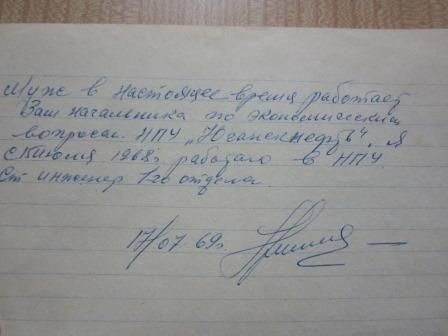 Муж в настоящее время работает
Зам начальника по экономическим
вопросам НПУ „Юганскнефть", Я
с июля 1968г работаю в НПУ
Ст инженер 1го отдела
17/07 69г